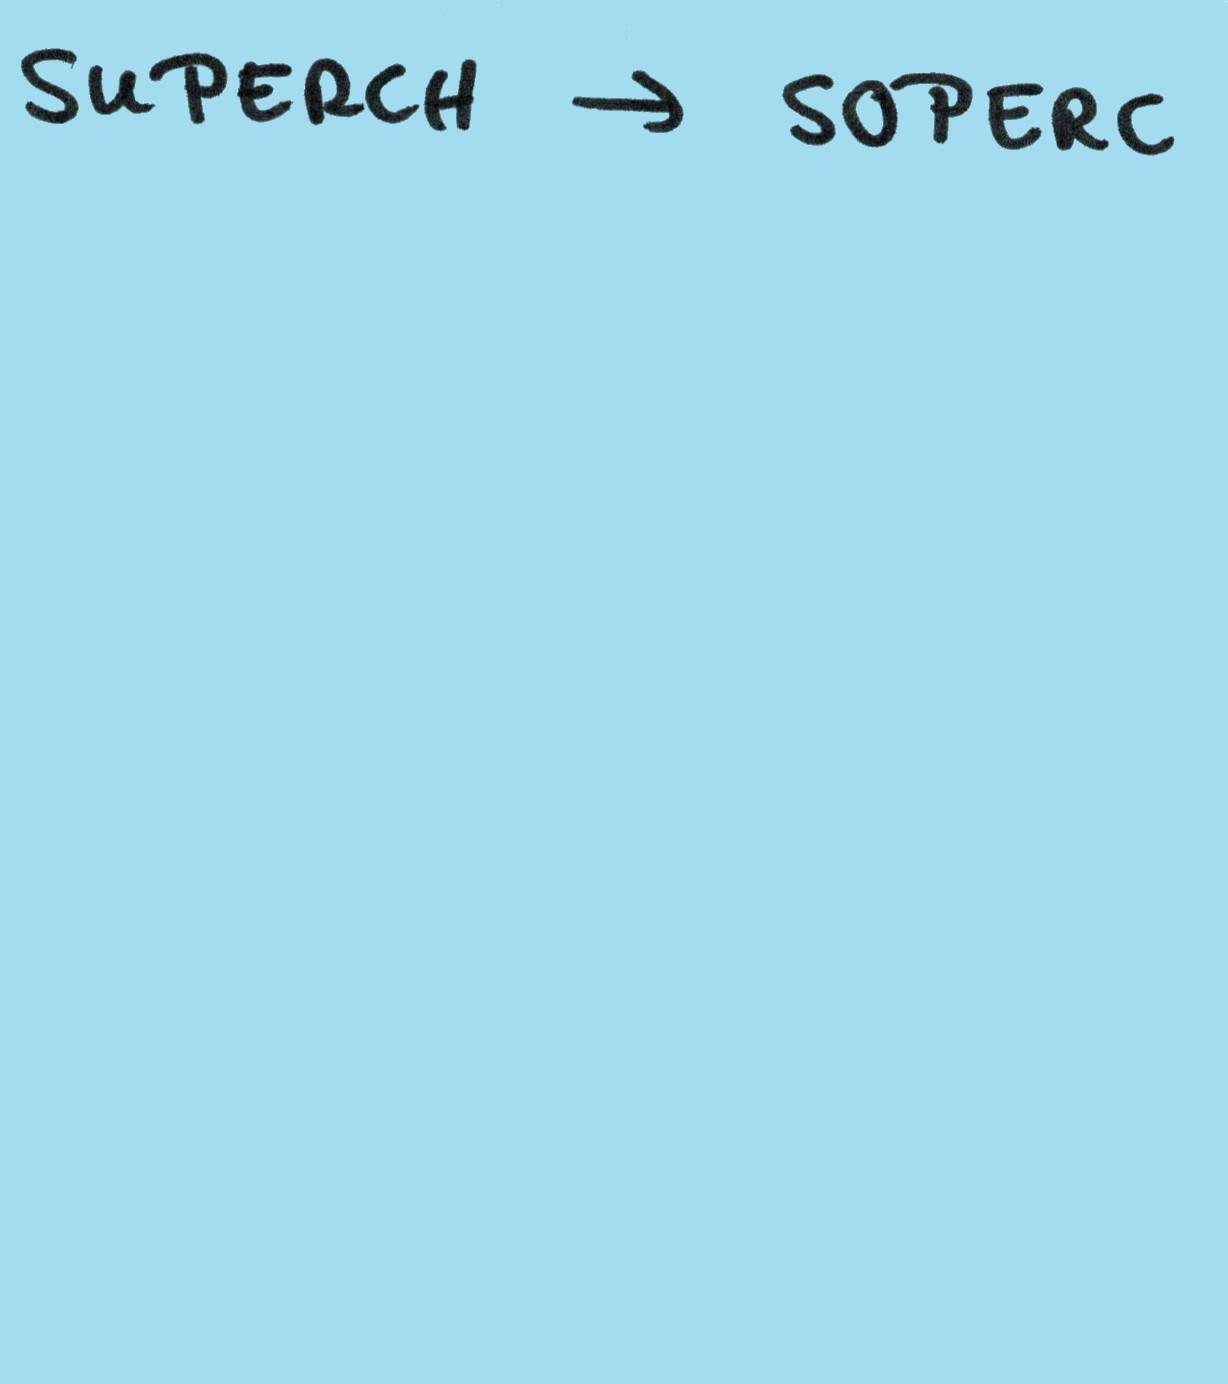 SUPERCH → SOPERC